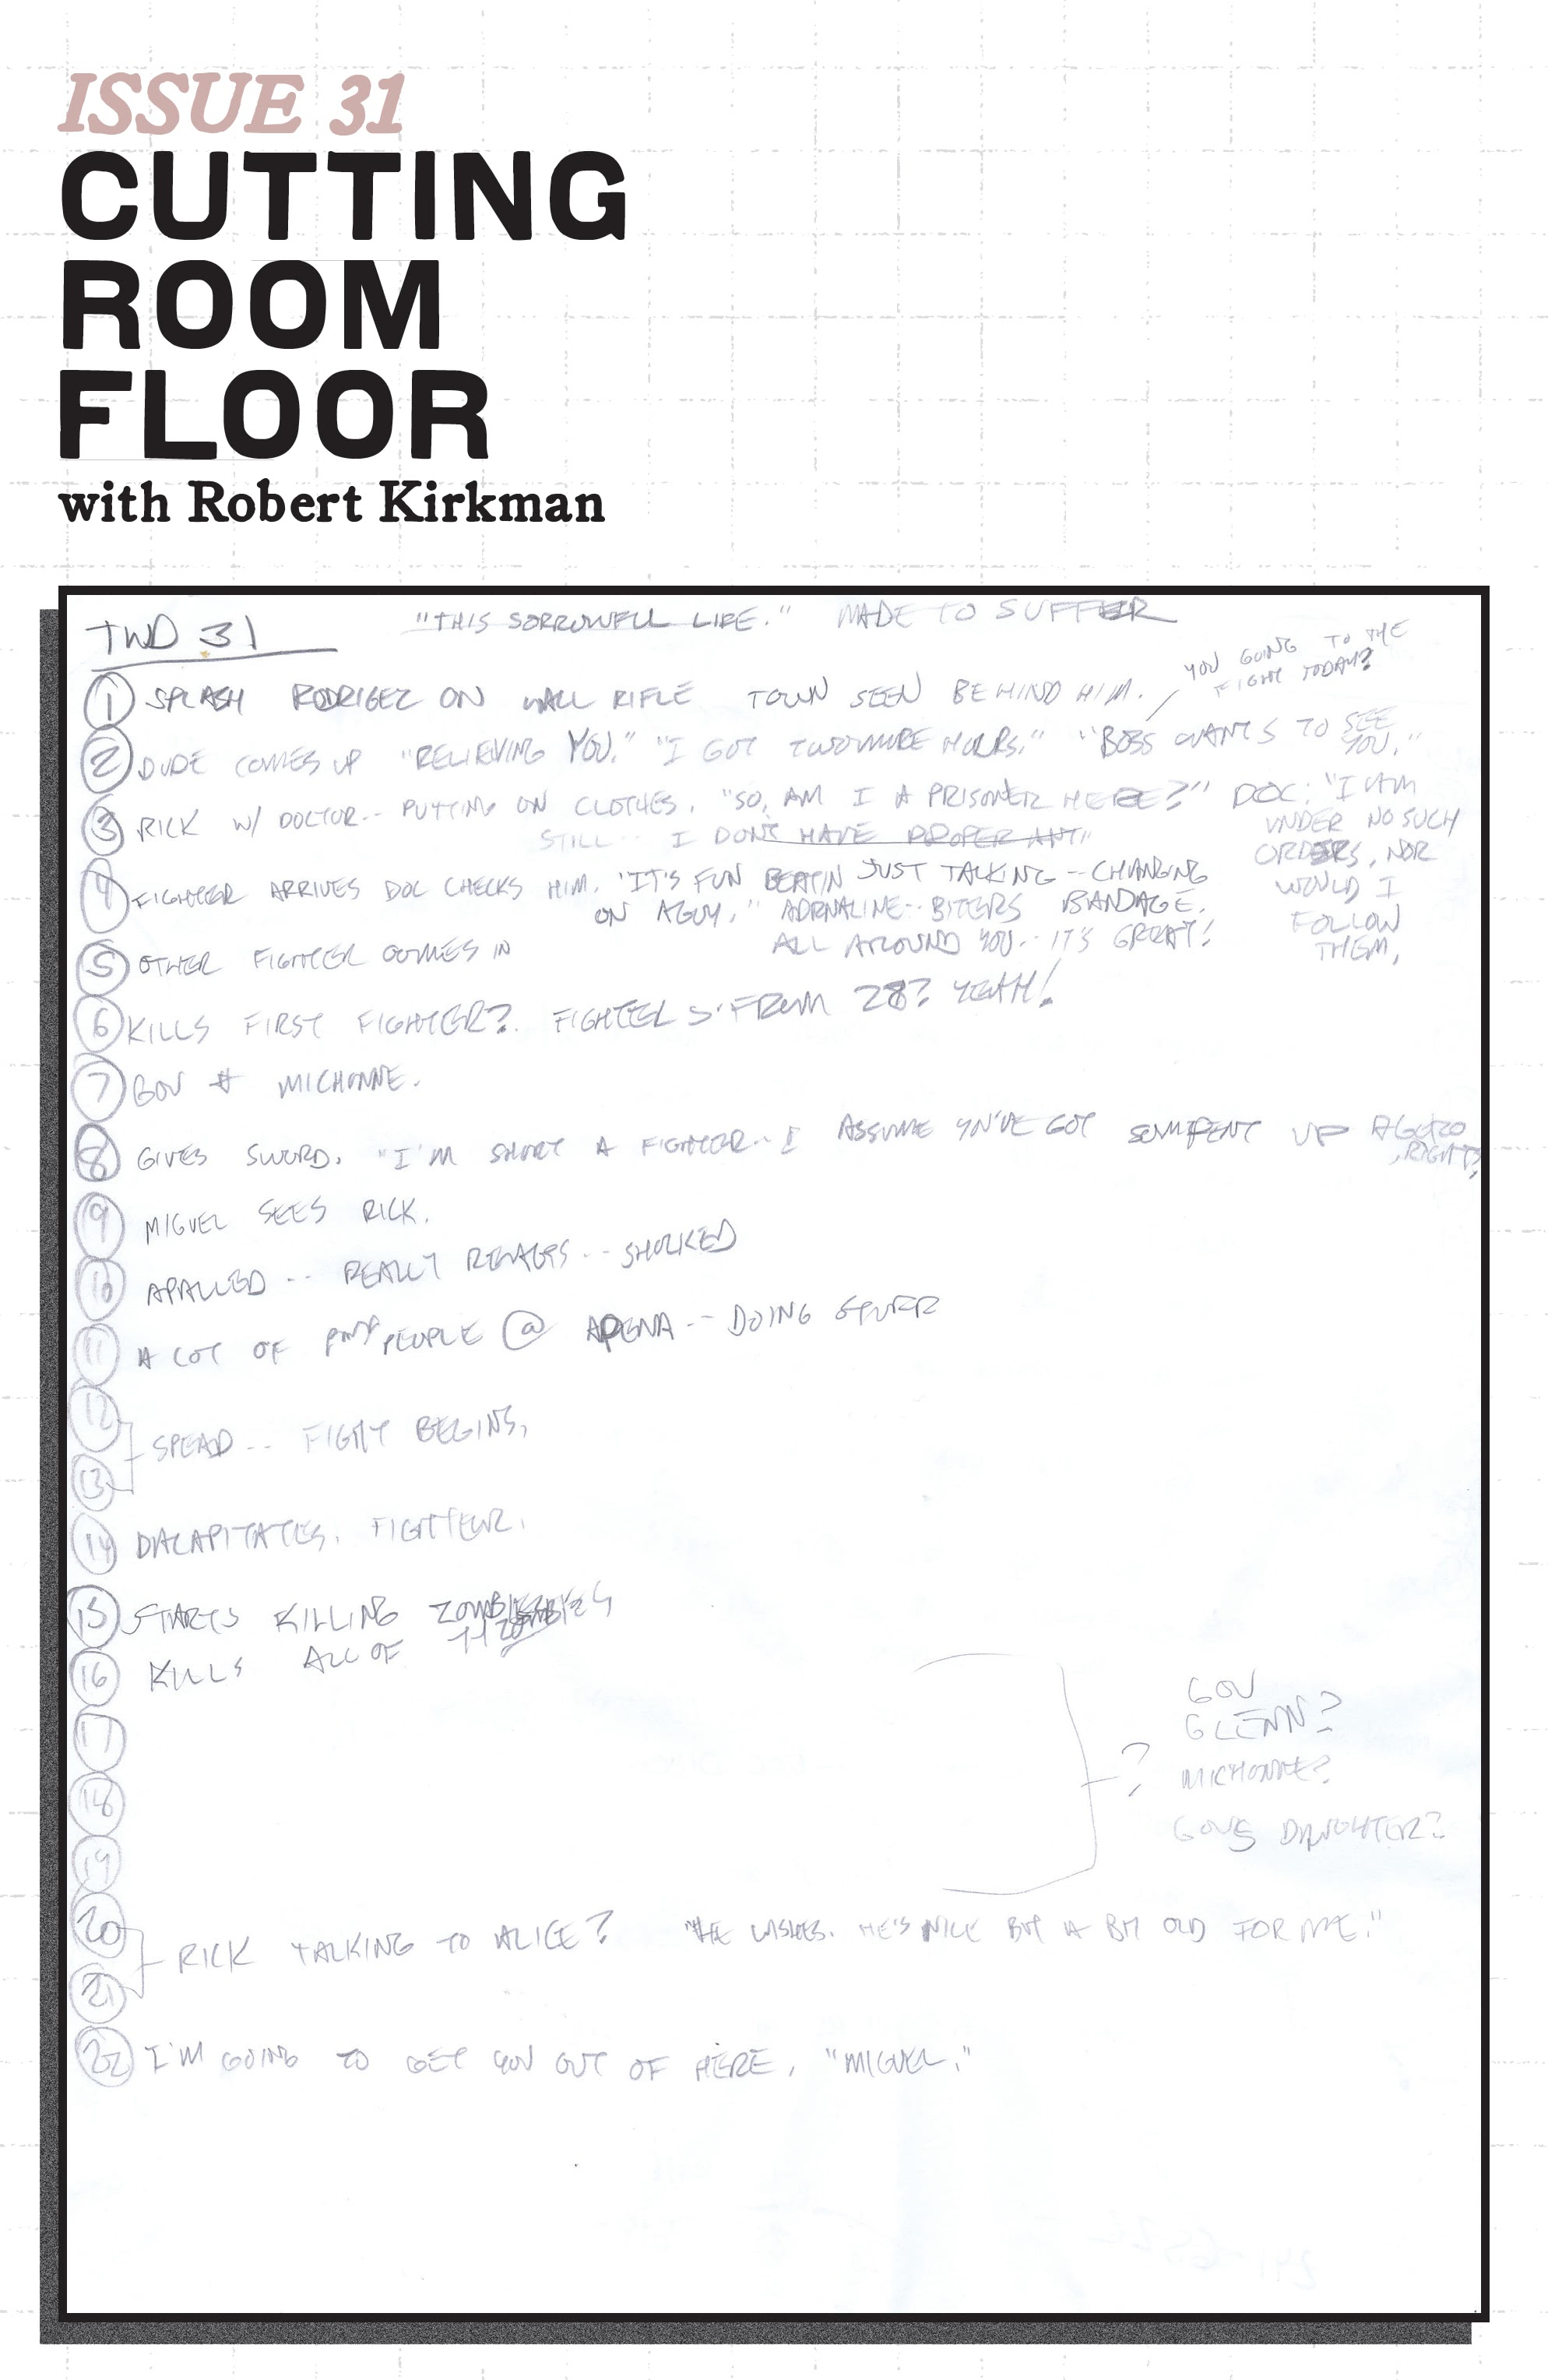 ISSUE 31
CUTTING
ROOM
FLOOR
with Robert Kirkman
TWD 31 "THIS SORROWFULL LIFE." MADE TO SUFFER
YOU GOING TO THE
FIGHT TODAY?
1 SPLASH RODRIGEZ ON WALL RIFLE TOWN SEEN BEHIND HIM.
2 DUDE COMES UP "RELIEVING YOU." "I GOT TWO MORE HOURS." "BOSS WANTS TO SEE
YOU."
3 RICK W/ DOCTOR-- PUTTING ON CLOTHES. "SO, AM I A PRISONER HERE?" DOC: "I AM
UNDER NO SUCH
ORDERS, NOR
WOULD I
FOLLOW
THEM,
STILL -- I DON'T HAVE PROPER ANT"
4 FIGHTER ARRIVES DOC CHECKS HIM. "IT'S FUN BEATIN JUST TALKING -- CHANGING
ON A GUY." ADRNALINE-- BITERS BANDAGE.
ALL AROUND YOU-- IT'S GREAT!
5 OTHER FIGHTER COMES IN
6 KILLS FIRST FIGHTER? FIGHTERS FROM 28? YEAH!
7 GOV & MICHONNE.
8 GIVES SWORD. "I'M SHORT A FIGHTER-- I ASSUME YOU'VE GOT SOME PENT UP AGGRO
,RIGHT?
9 MIGUEL SEES RICK.
10 APALLED -- REALLY -- SHOCKED
11 A LOT OF PEOPLE @ ARENA -- DOING STUFF
12
13 SPEAD -- FIGHT BEGINS,
14 DACAPITATES. FIGHTER.
15 STARTS KILLING ZOMBIES
16 KILLS ALL OF ZOMBIES
17
18
19
? GOV
GLENN?
MICHONNE?
GOVS DAUGHTER?
20
21 RICK TALKING TO ALICE? "HE WISHES. HE'S NICE BUT A BIT OLD FOR ME."
22 I'M GOING TO GET YOU OUT OF HERE, "MIGUEL."